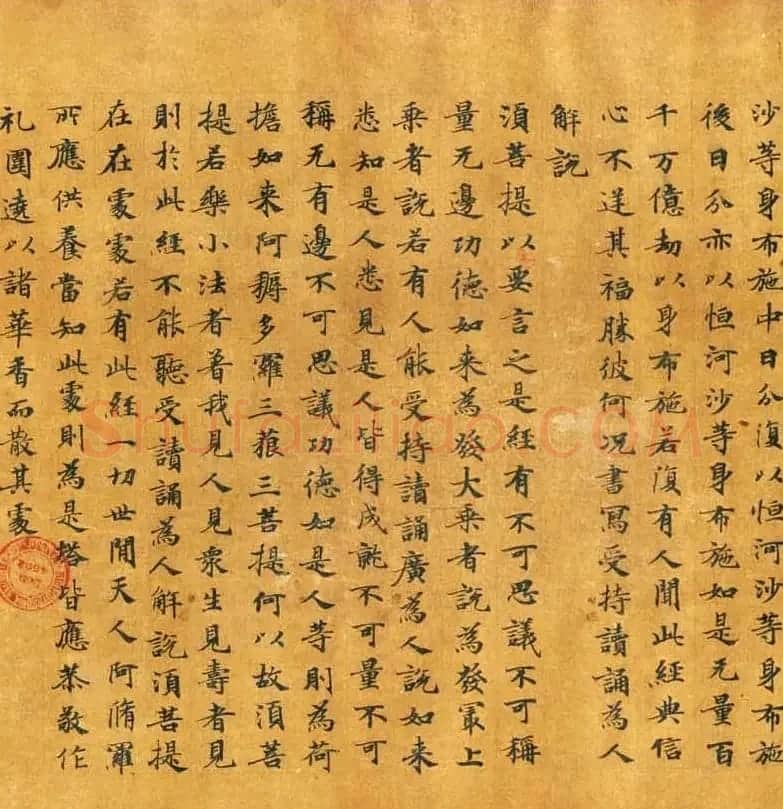 沙等身布施中日分復以恒河沙等身布施
後日分亦以恒河沙等身布施如是无量百
千万億劫以身布施若復有人聞此經典信
心不逆其福勝彼何况書寫受持讀誦為人
解說
須菩提以要言之是經有不可思議不可稱
量无邊功德如来為發大乘者說為發冣上
乘者說若有人能受持讀誦廣為人說如来
悉知是人悉見是人皆得成就不可量不可
稱无有邊不可思議功德如是人等則為荷
擔如来阿耨多羅三藐三菩提何以故須菩
提若樂小法者著我見人見衆生見壽者見
則於此經不能聽受讀誦為人解說須菩提
在在處處若有此經一切世間天人阿脩羅
所應供養當知此處則為是塔皆應恭敬作
礼圍遶以諸華香而散其處
Shufaziliao.COM